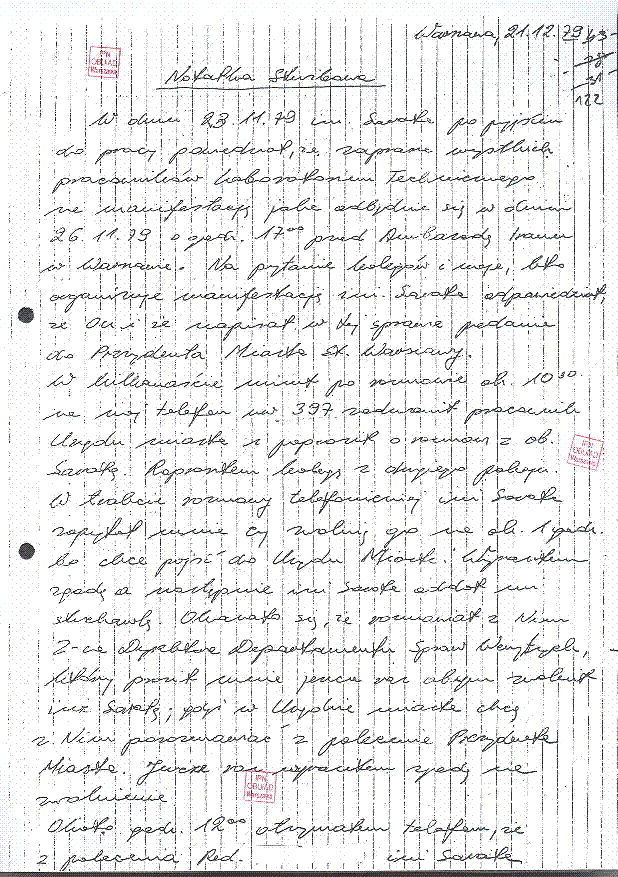 Warszawa, 21.12.79
Notatka Służbowa
W dniu 23.11.79 inż. Sawała po przyjściu
do pracy powiedział, że zaprasza wszystkich
pracowników Laboratorium Technicznego
na manifestację jaka odbędzie się w dniu
26.11.79 o godz. 17⁰⁰ przed Ambasadą Iranu
w Warszawie. Na pytanie kolegów i moje, kto
organizuje manifestację inż. odpowiedział,
że On i że napisał w tej sprawie podanie
do Prezydenta Miasta St. Warszawy.
W kilkanaście minut po rozmowie ok. 10³⁰
na mój telefon nw 397 zadzwonił pracownik
Urzędu miasta i poprosił o rozmowę z ob.
Poprosiłem kolegę z drugiego pokoju.
W trakcie rozmowy telefonicznej inż
zapytał mnie czy zwolnię go na ok. 1 godz.
bo chce pójść do Urzędu Miasta. Wyraziłem
zgodę a następnie inż oddał mi
słuchawkę. Okazało się, że rozmawiał z Nim
Z-ca Dyrektora Departamentu Spraw Wewnętrznych,
który prosił mnie jeszcze raz abym zwolnił
inż gdyż w Urzędzie miasta chcą
z Nim porozmawiać z polecenia Prezydenta
Miasta. Jeszcze raz wyraziłem zgodę na
zwolnienie
Około godz. 12⁰⁰ otrzymałem telefon, że
z polecenia Red. inż
IPN
OBUiAD
Warszawa
IPN
OBUiAD
Warszawa
IPN
OBUiAD
Warszawa
122